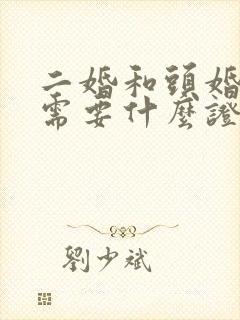 二婚和頭婚
需要什麼證
劉少斌